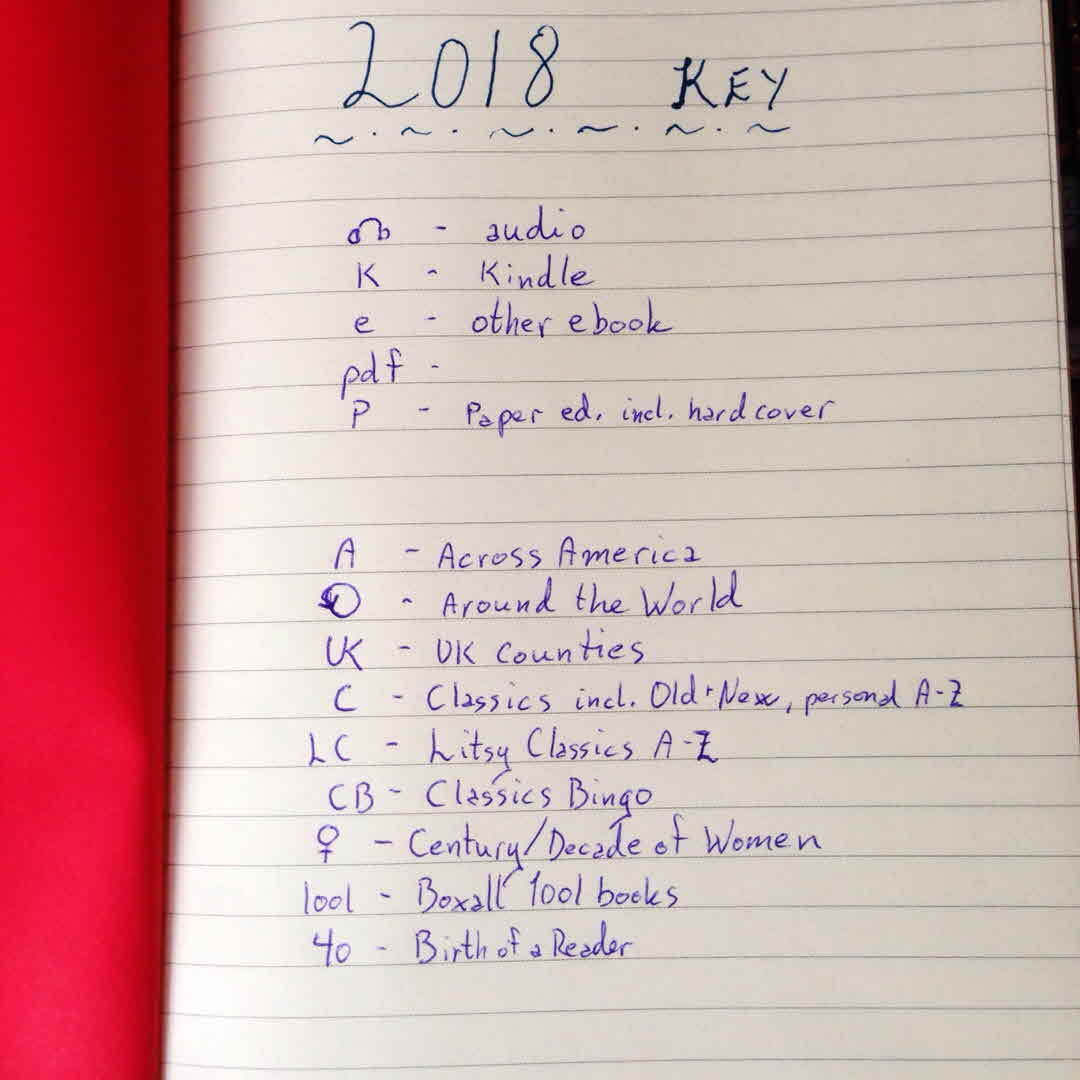 2018 KEY
~ · ~ · ~ · ~ · ~ · ~
- audio
K - Kindle
e - other ebook
pdf -
P - Paper ed. incl. hardcover
A - Across America
- Around the World
UK - UK Counties
C - Classics incl. Old + New, personal A-Z
LC - Litsy Classics A-Z
CB - Classics Bingo
♀ - Century/Decade of Women
1001 - Boxall 1001 books
40 - Birth of a Reader